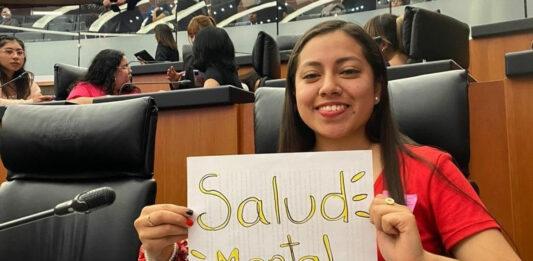 Salud
Mental